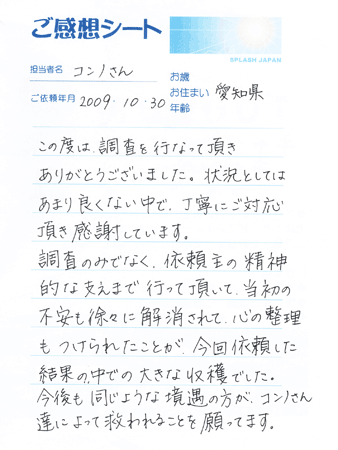 ご感想シート
SPLASH JAPAN
担当者名 コンノさん
お歳
お住まい 愛知県
ご依頼年月 2009.10.30
年齢
この度は、調査を行なって頂き
ありがとうございました。状況としては
あまり良くない中で、丁寧にご対応
頂き感謝しています。
調査のみでなく、依頼主の精神
的な支えまで行って頂いて、当初の
不安も徐々に解消されて、心の整理
もつけられたことが、今回依頼した
結果の中での大きな収穫でした。
今後も同じような境遇の方が、コンノさん
達によって救われることを願ってます。